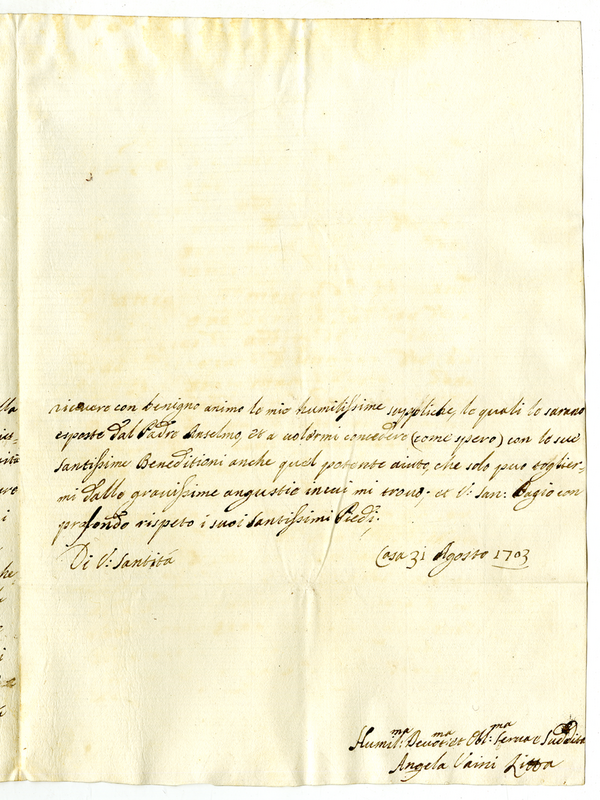 ricevere con benigno animo le mie humilissime suppliche, le quali le sarano
esposte dal Padre Anselmo, et a volermi concedere (come spero) con le sue
santissime Beneditioni anche quel potente aiuto, che solo può toglier=
mi dalle gravissime angustie in cui mi trovo; et V: San: Bagio con
profondo rispeto i suoi santissimi Piedi.
Di V: Santità
Casa 31 Agosto 1703
Humil:ma Devot:ma et Obl:ma serva e Suddita
Angela Vaini Litta